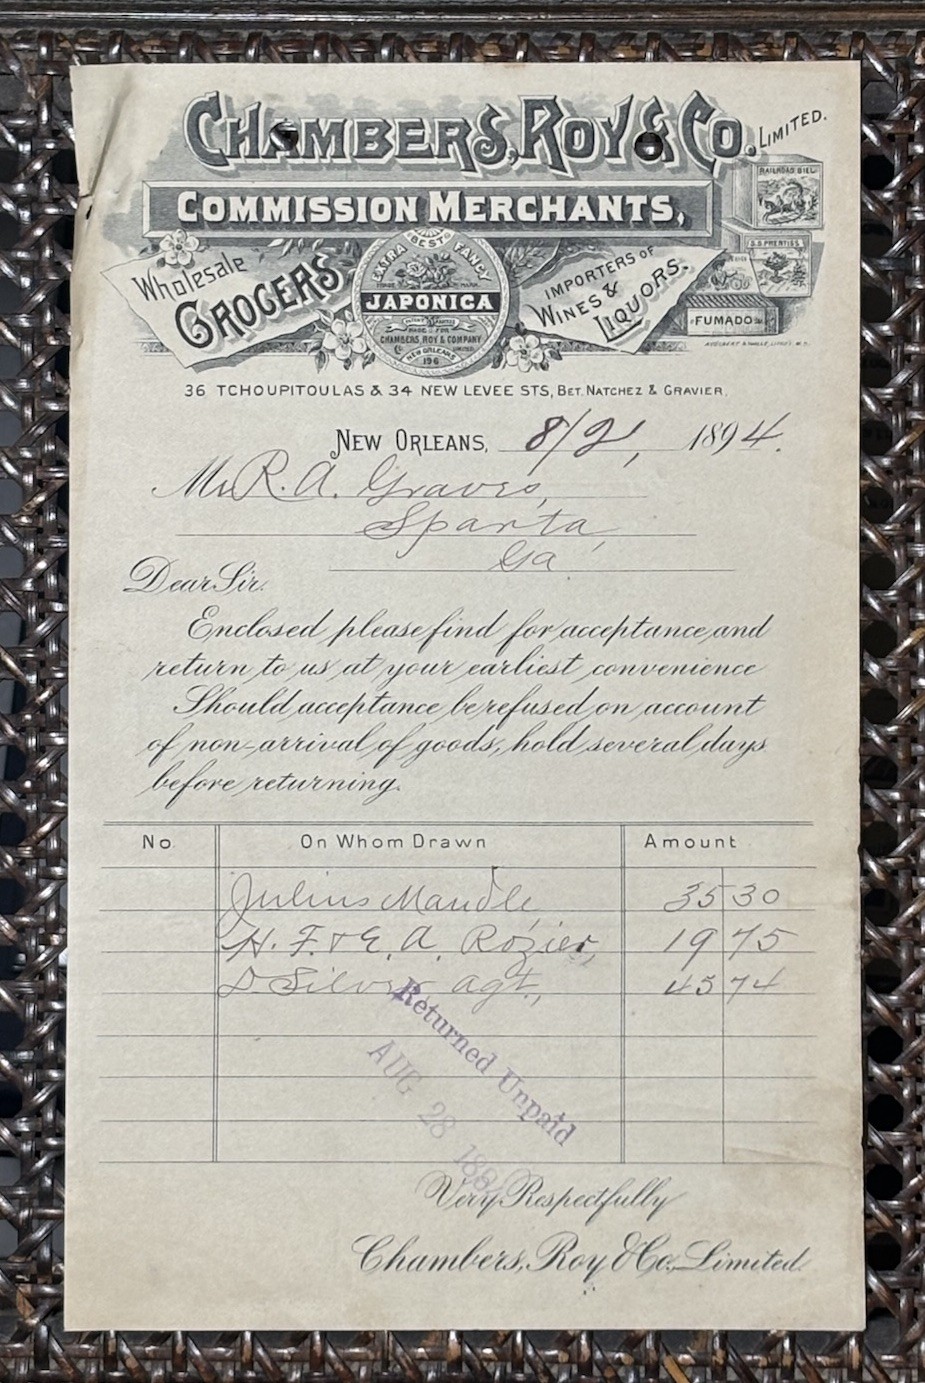 CHAMBERS, ROY & CO. LIMITED.
COMMISSION MERCHANTS,
Wholesale
GROCERS
BEST
EXTRA FANCY
TRADE MARK
JAPONICA
MADE FOR
CHAMBERS, ROY & COMPANY
LIMITED
NEW ORLEANS
196
IMPORTERS OF
WINES &
LIQUORS.
RAILROAD
S.S. PRENTISS
FUMADO
36 TCHOUPITOULAS & 34 NEW LEVEE STS, BET. NATCHEZ & GRAVIER.
NEW ORLEANS, 8/21, 1894.
Mr R. A. Graves,
Sparta,
Ga
Dear Sir.
Enclosed please find for acceptance and
return to us at your earliest convenience
Should acceptance be refused on account
of non-arrival of goods, hold several days
before returning.
No. On Whom Drawn Amount
Julius Mandle, 35 30
H. F. & E. A. Rozier, 19 75
D Silver agt., 45 74
Returned Unpaid
AUG 28
Very Respectfully
Chambers, Roy & Co., Limited.